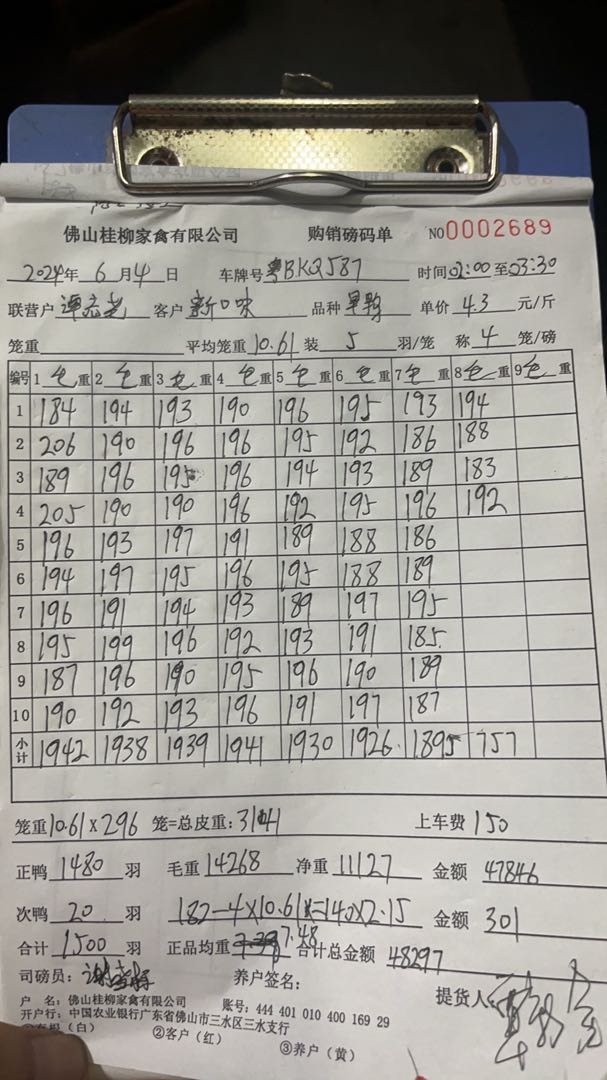 佛山桂柳家禽有限公司 购销磅码单 NO0002689
2024年 6 月 4 日 车牌号 粤BKQ587 时间 02:00 至 03:30
联营户 谭志光 客户 新口味 品种 单价 4.3 元/斤
笼重 平均笼重 10.61 装 5 羽/笼 称 4 笼/磅
编号 1 毛重 2 毛重 3 毛重 4 毛重 5 毛重 6 毛重 7 毛重 8 毛重 9 毛重
1 184 194 193 190 196 195 193 194
2 206 190 196 196 195 192 186 188
3 189 196 195 196 194 193 189 183
4 205 190 190 196 192 195 196 192
5 196 193 197 191 189 188 186
6 194 197 195 196 195 188 189
7 196 191 194 193 189 197 195
8 195 199 196 192 193 191 185
9 187 196 190 195 196 190 189
10 190 192 193 196 191 197 187
小计 1942 1938 1939 1941 1930 1926 1895 757
笼重 10.61 X 296 笼=总皮重: 3141 上车费 150
正鸭 1480 羽 毛重 14268 净重 11127 金额 47846
次鸭 20 羽 182-4X10.61=140X2.15 金额 301
合计 1500 羽 正品均重 7.48 合计总金额 48297
司磅员: 养户签名: 提货人:
户 名: 佛山桂柳家禽有限公司 账号: 444 401 010 400 169 29
开户行: 中国农业银行广东省佛山市三水区三水支行
①存根(白) ②客户(红) ③养户(黄)